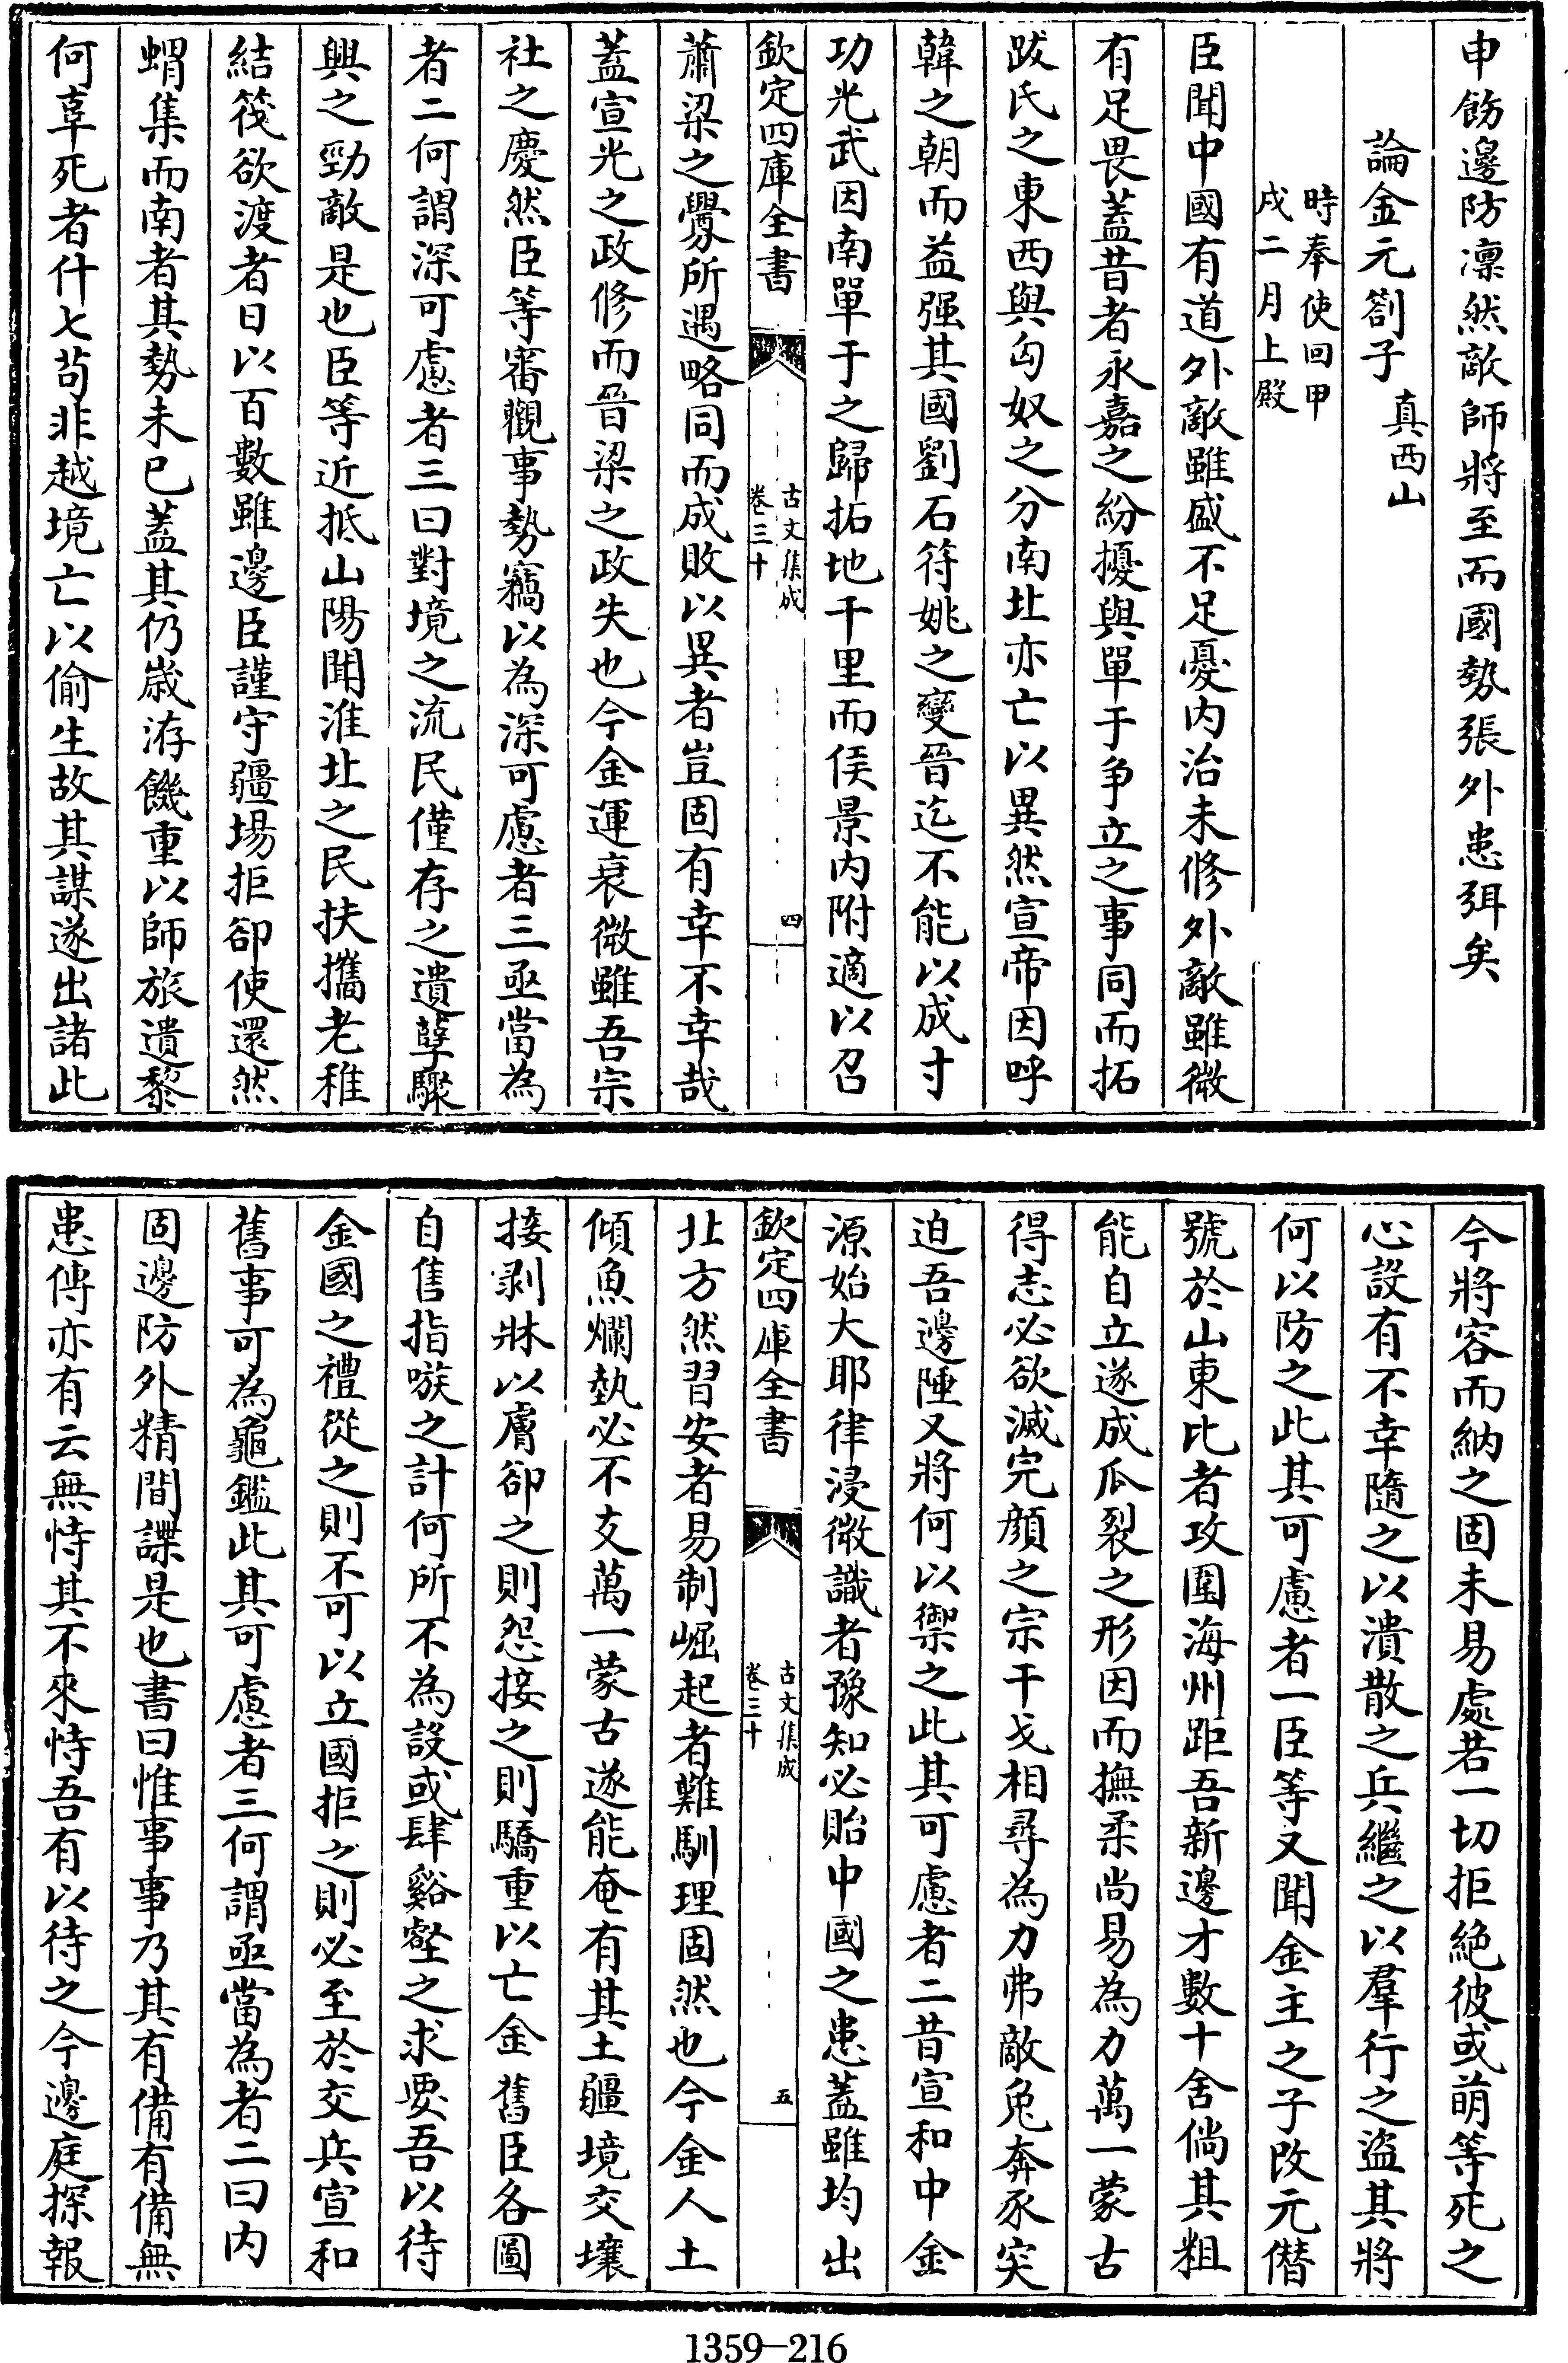 申飭邊防凛然敵師將至而國勢張外患弭矣
論金元劄子　真西山
時奉使回甲
戌二月上殿
臣聞中國有道外敵雖盛不足憂内治未修外敵雖微
有足畏蓋昔者永嘉之紛擾與單于争立之事同而拓
跋氏之東西與匈奴之分南北亦亡以異然宣帝因呼
韓之朝而益强其國劉石符姚之變晉迄不能以成寸
功光武因南單于之歸拓地千里而侯景内附適以召
欽定四庫全書
古文集成
卷三十
四
蕭梁之釁所遇略同而成敗以異者豈固有幸不幸哉
蓋宣光之政修而晉梁之政失也今金運衰微雖吾宗
社之慶然臣等審觀事勢竊以為深可慮者三亟當為
者二何謂深可慮者三曰對境之流民僅存之遺孽驟
興之勁敵是也臣等近抵山陽聞淮北之民扶攜老稚
結筏欲渡者日以百數雖邊臣謹守疆埸拒卻使還然
蝟集而南者其勢未已蓋其仍歳洊饑重以師旅遺黎
何辜死者什七苟非越境亡以偷生故其謀遂出諸此
今將容而納之固未易處若一切拒絶彼或萌等死之
心設有不幸隨之以潰散之兵繼之以羣行之盜其將
何以防之此其可慮者一臣等又聞金主之子改元僭
號於山東比者攻圍海州距吾新邊才數十舍倘其粗
能自立遂成瓜裂之形因而撫柔尚易為力萬一蒙古
得志必欲滅完顔之宗干戈相尋為力弗敵兔奔豕突
迫吾邊陲又將何以禦之此其可慮者二昔宣和中金
源始大耶律浸微識者豫知必貽中國之患蓋雖均出
欽定四庫全書
古文集成
卷三十
五
北方然習安者易制崛起者難馴理固然也今金人土
傾魚爛埶必不支萬一蒙古遂能奄有其土疆境交壤
接剥牀以膚卻之則怨接之則驕重以亡金舊臣各圖
自售指嗾之計何所不為設或肆谿壑之求要吾以待
金國之禮從之則不可以立國拒之則必至於交兵宣和
舊事可為龜鑑此其可慮者三何謂亟當為者二曰内
固邊防外精間諜是也書曰惟事事乃其有備有備無
患傳亦有云無恃其不來恃吾有以待之今邊庭探報
1359-216